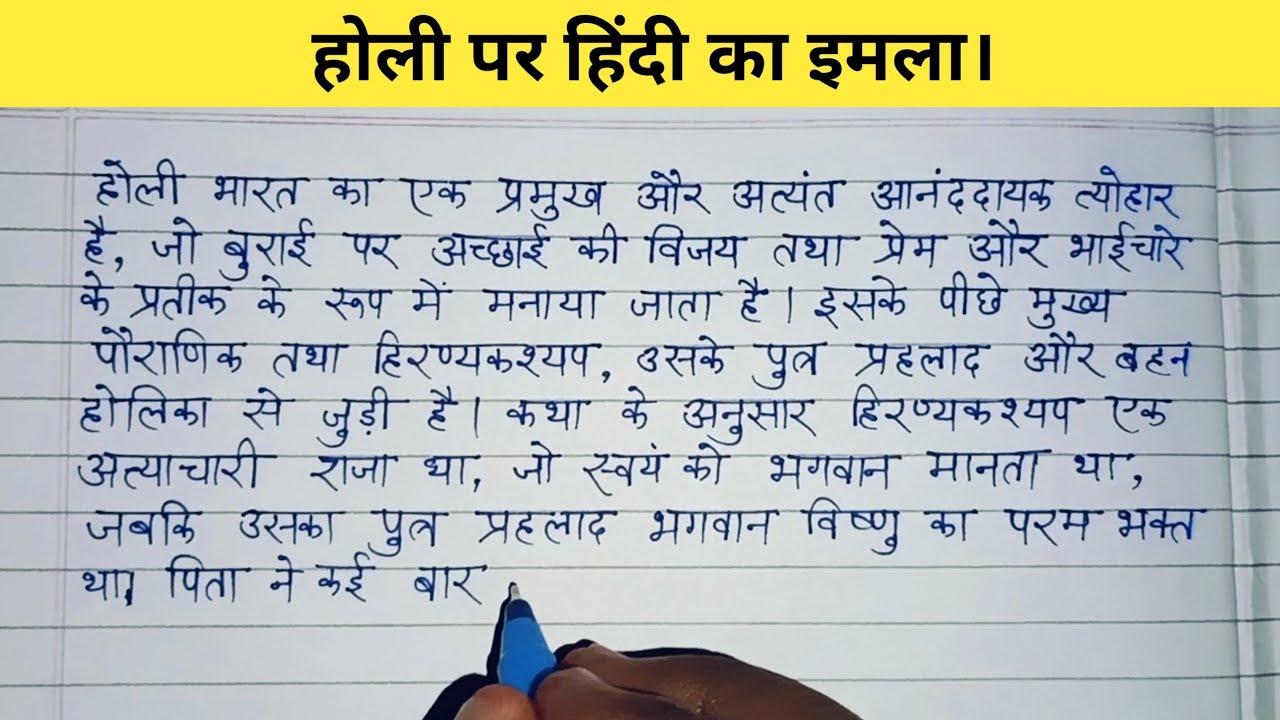 होली पर हिंदी का इमला।
होली भारत का एक प्रमुख और अत्यंत आनंददायक त्योहार
है, जो बुराई पर अच्छाई की विजय तथा प्रेम और भाईचारे
के प्रतीक के रूप में मनाया जाता है। इसके पीछे मुख्य
पौराणिक तथा हिरण्यकश्यप, उसके पुत्र प्रहलाद और बहन
होलिका से जुड़ी है। कथा के अनुसार हिरण्यकश्यप एक
अत्याचारी राजा था, जो स्वयं को भगवान मानता था,
जबकि उसका पुत्र प्रहलाद भगवान विष्णु का परम भक्त
था। पिता ने कई बार